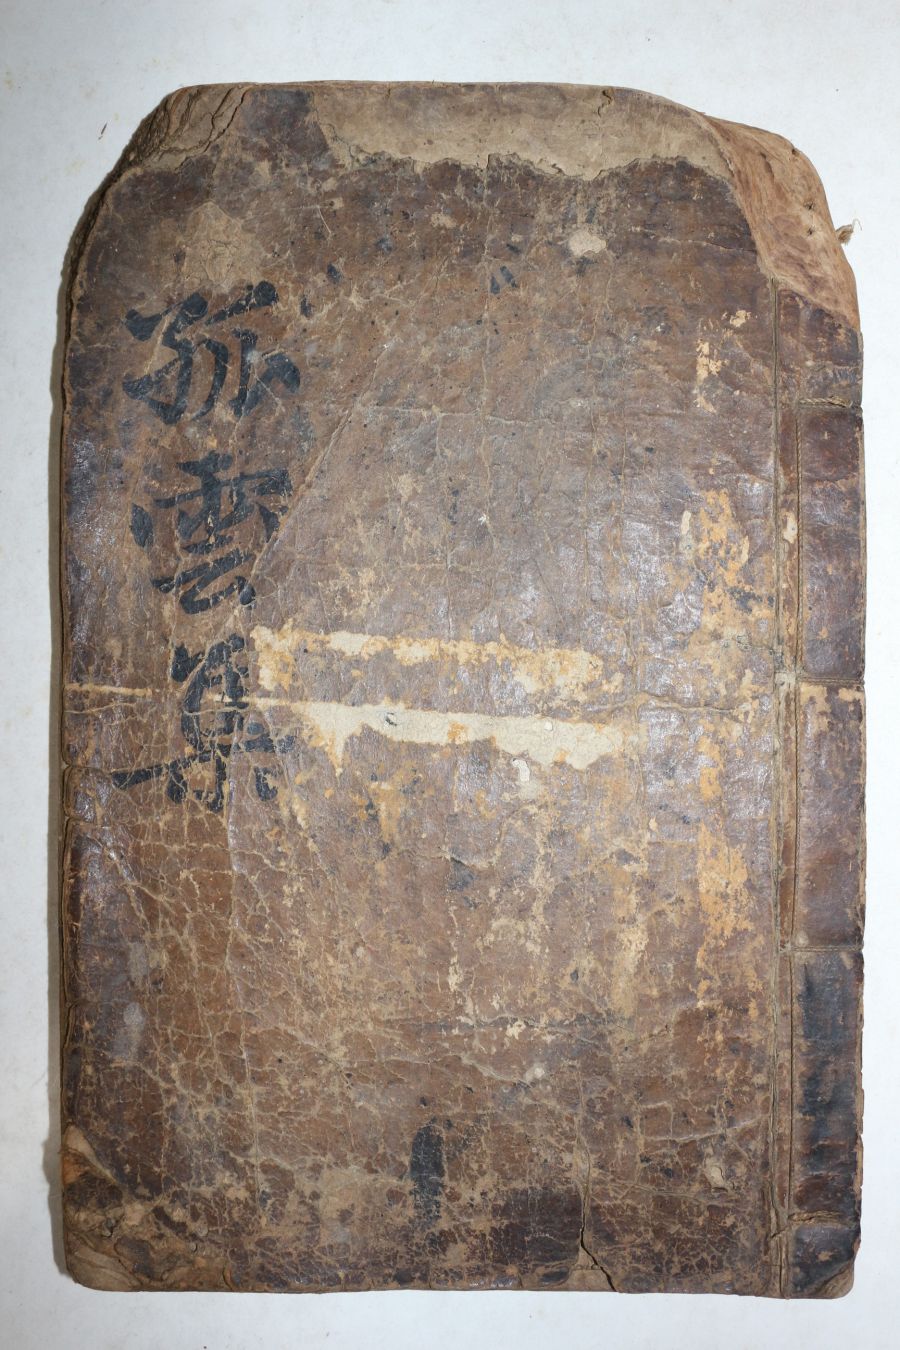 孤雲集